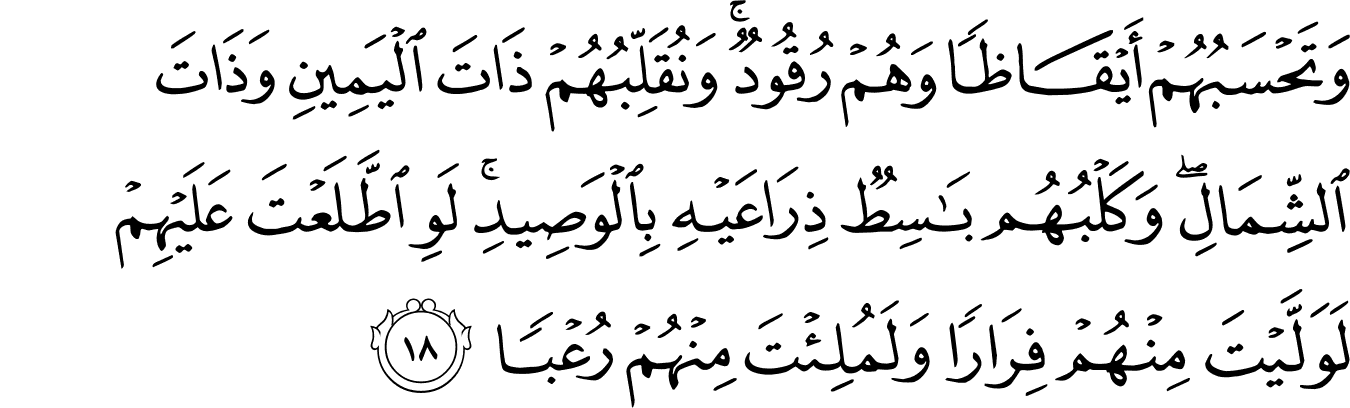 وَتَحْسَبُهُمْ أَيْقَاظًا وَهُمْ رُقُودٌ ۚ وَنُقَلِّبُهُمْ ذَاتَ ٱلْيَمِينِ وَذَاتَ
ٱلشِّمَالِ ۖ وَكَلْبُهُم بَـٰسِطٌ ذِرَاعَيْهِ بِٱلْوَصِيدِ ۚ لَوِ ٱطَّلَعْتَ عَلَيْهِمْ
لَوَلَّيْتَ مِنْهُمْ فِرَارًا وَلَمُلِئْتَ مِنْهُمْ رُعْبًا ١٨